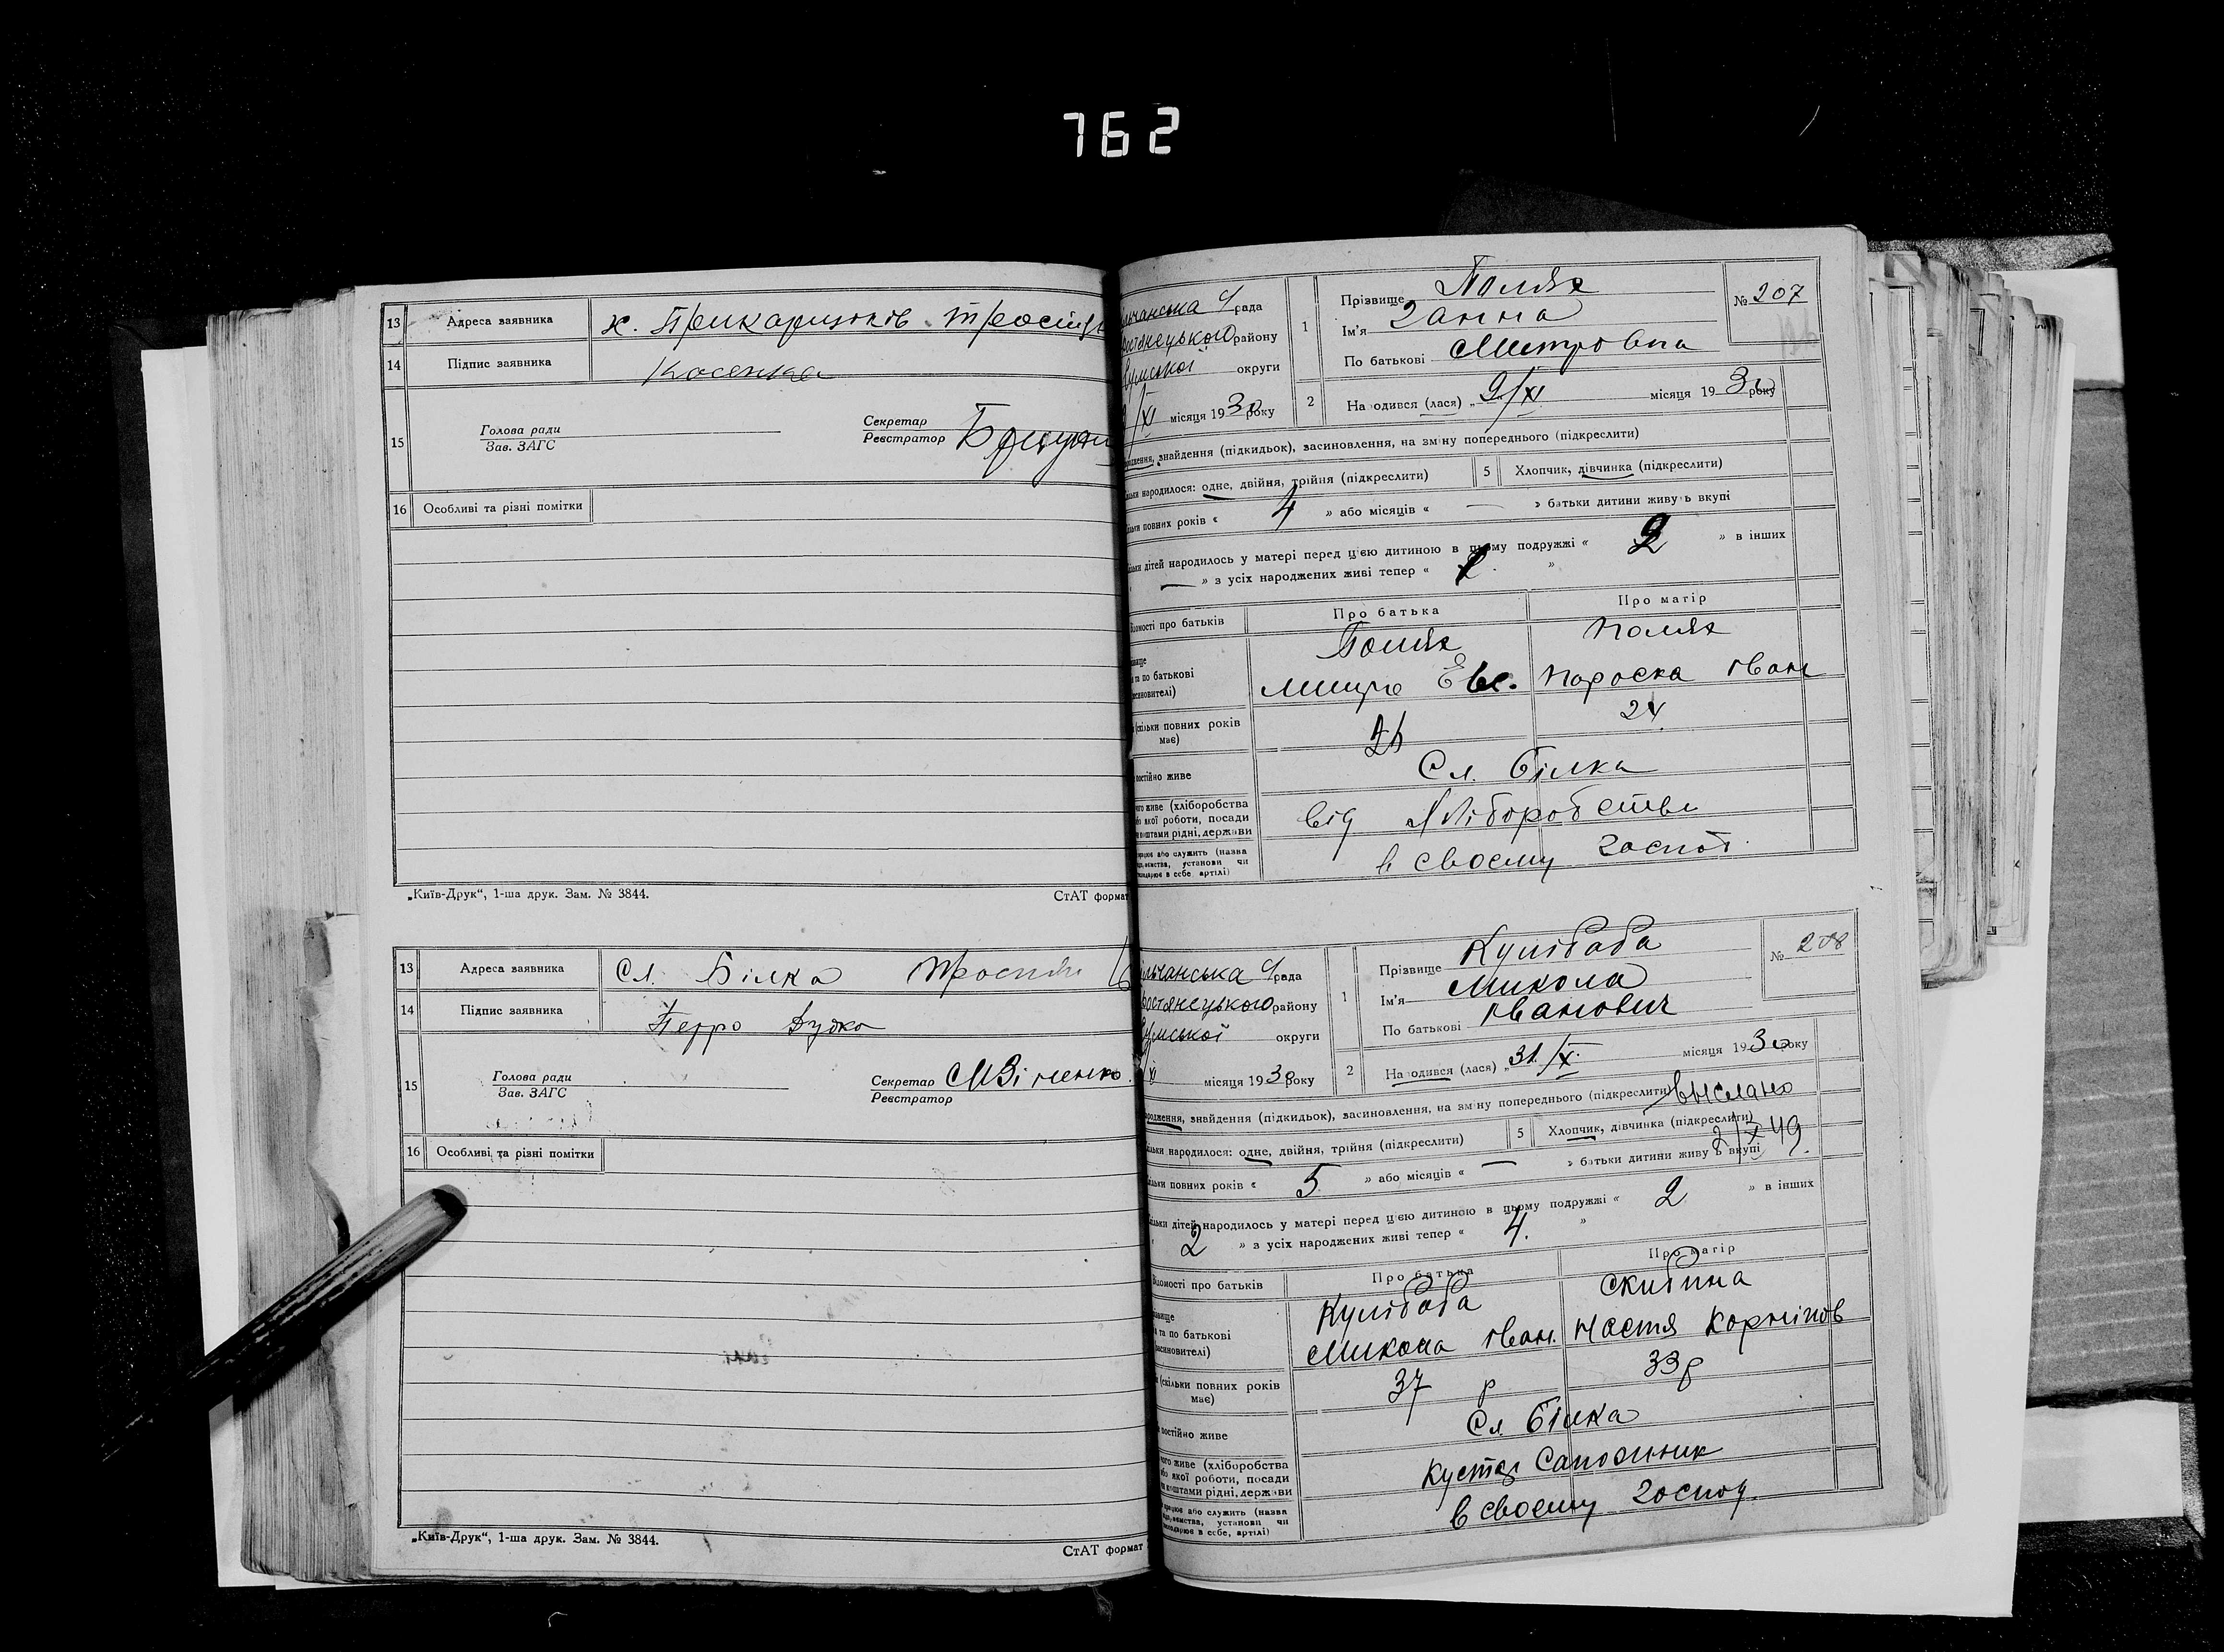 762
13 Адреса заявника х. Прикарщоків Тростя
14 Підпис заявника Косенко
15 Голова ради
Зав. ЗАГС
Секретар
Реєстратор
16 Особливі та різні помітки
„Київ-Друк“, 1-ша друк. Зам. № 3844.
СтАТ формат
13 Адреса заявника Сл. Білка Тростян
14 Підпис заявника Петро Дудко
15 Голова ради
Зав. ЗАГС
Секретар
Реєстратор
16 Особливі та різні помітки
„Київ-Друк“, 1-ша друк. Зам. № 3844.
СтАТ формат
льчанська С/рада
ростянецького району
Сумської округи
/XI місяця 1930 року
1 Прізвище Поляк
Ім'я Ганна
По батькові Митровна
№ 207
2 Народився (лася) „ 9/XI місяця 1930 року
родження, знайдення (підкидьок), засиновлення, на зміну попереднього (підкреслити)
ільки народилося: одне, двійня, трійня (підкреслити) 5 Хлопчик, дівчинка (підкреслити)
ільки повних років « 4 » або місяців « — » батьки дитини живуть вкупі
ільки дітей народилось у матері перед цією дитиною в цьому подружжі « 2 » в інших
— » з усіх народжених живі тепер « »
Відомості про батьків Про батька Про матір
ізвище Поляк Поляк
я та по батькові Митро Евс. Пароска Іван
(скільки повних років має) 24
постійно живе Сл. Білка
чого живе (хліборобства
або якої роботи, посади
чи коштами рідні, держави від Хліборобства
працює або служить (назва
установи чи
в себе, артілі) в своєму господ.
льчанська С/рада
ростянецького району
Сумської округи
XI місяця 1930 року
1 Прізвище Кулібаба
Ім'я Микола
По батькові Іванович
№ 208
2 Народився (лася) „ 31/X. місяця 1930 року
родження, знайдення (підкидьок), засиновлення, на зміну попереднього (підкреслити) выслано
ільки народилося: одне, двійня, трійня (підкреслити) 5 Хлопчик, дівчинка (підкреслити)
2/X 49.
ільки повних років « 5 » або місяців « — » батьки дитини живуть вкупі
ільки дітей народилось у матері перед цією дитиною в цьому подружжі « 2 » в інших
2 » з усіх народжених живі тепер « 4. »
Відомості про батьків Про батька Про матір
ізвище Кулібаба Скибина
я та по батькові Микола Іван. Настя Корніїв
(скільки повних років має) 37 р 33р
постійно живе Сл Білка
чого живе (хліборобства
або якої роботи, посади
чи коштами рідні, держави Кустар Сапожник
працює або служить (назва
установи чи
в себе, артілі) в своєму господ.